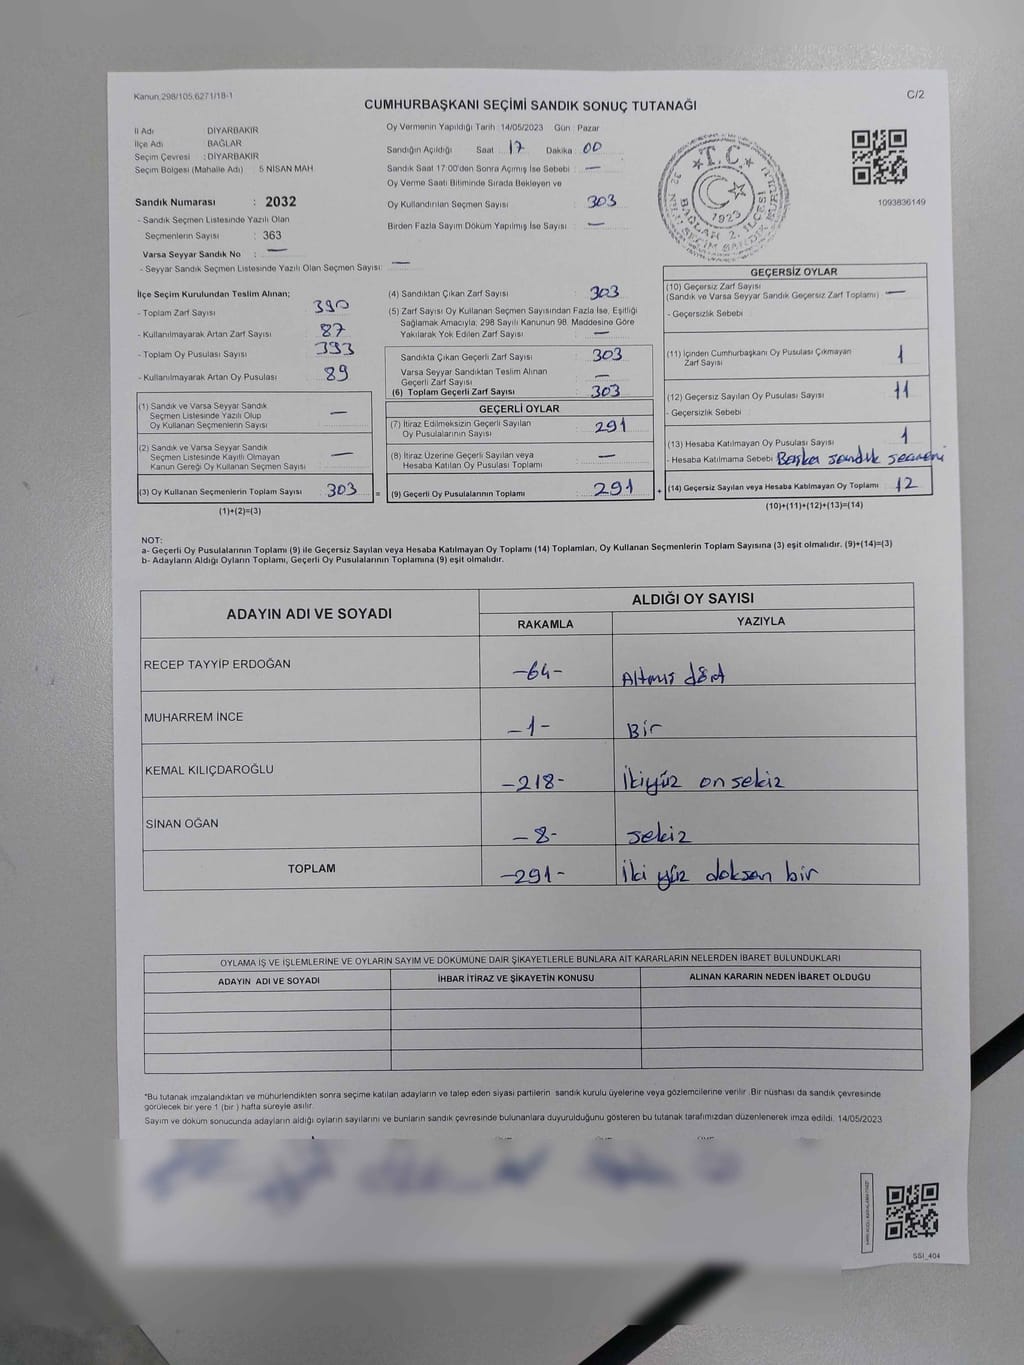 Kanun 298/105.6271/18-1
C/2
CUMHURBAŞKANI SEÇİMİ SANDIK SONUÇ TUTANAĞI
İl Adı DİYARBAKIR
İlçe Adı BAĞLAR
Seçim Çevresi : DİYARBAKIR
Seçim Bölgesi (Mahalle Adı) 5 NİSAN MAH
Sandık Numarası : 2032
- Sandık Seçmen Listesinde Yazılı Olan
Seçmenlerin Sayısı : 363
Varsa Seyyar Sandık No : —
- Seyyar Sandık Seçmen Listesinde Yazılı Olan Seçmen Sayısı: —
Oy Vermenin Yapıldığı Tarih : 14/05/2023 Gün : Pazar
Sandığın Açıldığı Saat 17 Dakika 00
Sandık Saat 17:00'den Sonra Açımış İse Sebebi : —
Oy Verme Saati Bitiminde Sırada Bekleyen ve
Oy Kullandırılan Seçmen Sayısı : 303
Birden Fazla Sayım Döküm Yapılmış İse Sayısı : —
T.C.
1923
BAĞLAR 2. İLÇESİ
1093836149
İlçe Seçim Kurulundan Teslim Alınan;
- Toplam Zarf Sayısı : 390
- Kullanılmayarak Artan Zarf Sayısı : 87
- Toplam Oy Pusulası Sayısı : 393
- Kullanılmayarak Artan Oy Pusulası : 89
(1) Sandık ve Varsa Seyyar Sandık
Seçmen Listesinde Yazılı Olup
Oy Kullanan Seçmenlerin Sayısı : —
(2) Sandık ve Varsa Seyyar Sandık
Seçmen Listesinde Kayıtlı Olmayan
Kanun Gereği Oy Kullanan Seçmen Sayısı : —
(3) Oy Kullanan Seçmenlerin Toplam Sayısı : 303 =
(1)+(2)=(3)
(4) Sandıktan Çıkan Zarf Sayısı : 303
(5) Zarf Sayısı Oy Kullanan Seçmen Sayısından Fazla İse, Eşitliği
Sağlamak Amacıyla; 298 Sayılı Kanunun 98. Maddesine Göre
Yakılarak Yok Edilen Zarf Sayısı : —
Sandıkta Çıkan Geçerli Zarf Sayısı : 303
Varsa Seyyar Sandıktan Teslim Alınan
Geçerli Zarf Sayısı : —
(6) Toplam Geçerli Zarf Sayısı : 303
GEÇERLİ OYLAR
(7) İtiraz Edilmeksizin Geçerli Sayılan
Oy Pusulalarının Sayısı : 291
(8) İtiraz Üzerine Geçerli Sayılan veya
Hesaba Katılan Oy Pusulası Toplamı : —
(9) Geçerli Oy Pusulalarının Toplamı : 291 +
GEÇERSİZ OYLAR
(10) Geçersiz Zarf Sayısı
(Sandık ve Varsa Seyyar Sandık Geçersiz Zarf Toplamı) : —
- Geçersizlik Sebebi :
(11) İçinden Cumhurbaşkanı Oy Pusulası Çıkmayan
Zarf Sayısı : 1
(12) Geçersiz Sayılan Oy Pusulası Sayısı : 11
- Geçersizlik Sebebi :
(13) Hesaba Katılmayan Oy Pusulası Sayısı : 1
- Hesaba Katılmama Sebebi : Başka sandık seçmeni
(14) Geçersiz Sayılan veya Hesaba Katılmayan Oy Toplamı : 12
(10)+(11)+(12)+(13)=(14)
NOT:
a- Geçerli Oy Pusulalarının Toplamı (9) ile Geçersiz Sayılan veya Hesaba Katılmayan Oy Toplamı (14) Toplamları, Oy Kullanan Seçmenlerin Toplam Sayısına (3) eşit olmalıdır. (9)+(14)=(3)
b- Adayların Aldığı Oyların Toplamı, Geçerli Oy Pusulalarının Toplamına (9) eşit olmalıdır.
ADAYIN ADI VE SOYADI
ALDIĞI OY SAYISI
RAKAMLA YAZIYLA
RECEP TAYYİP ERDOĞAN -64- Altmış dört
MUHARREM İNCE -1- Bir
KEMAL KILIÇDAROĞLU -218- İkiyüz on sekiz
SİNAN OĞAN -8- sekiz
TOPLAM -291- İki yüz doksan bir
OYLAMA İŞ VE İŞLEMLERİNE VE OYLARIN SAYIM VE DÖKÜMÜNE DAİR ŞİKAYETLERLE BUNLARA AİT KARARLARIN NELERDEN İBARET BULUNDUKLARI
ADAYIN ADI VE SOYADI İHBAR İTİRAZ VE ŞİKAYETİN KONUSU ALINAN KARARIN NEDEN İBARET OLDUĞU
*Bu tutanak imzalandıktan ve mühürlendikten sonra seçime katılan adayların ve talep eden siyasi partilerin sandık kurulu üyelerine veya gözlemcilerine verilir. Bir nüshası da sandık çevresinde
görülecek bir yere 1 (bir ) hafta süreyle asılır.
Sayım ve döküm sonucunda adayların aldığı oyların sayılarını ve bunların sandık çevresinde bulunanlara duyurulduğunu gösteren bu tutanak tarafımızdan düzenlenerek imza edildi. 14/05/2023
SSI_404